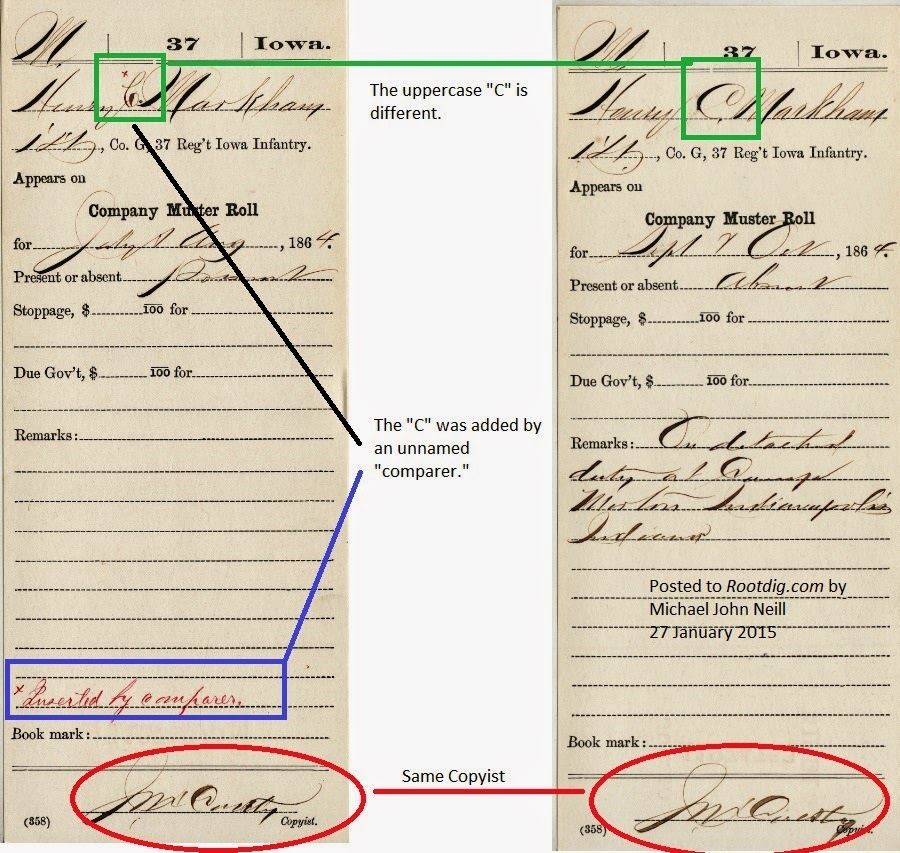 M. | 37 | Iowa.
Henry C. Markham
1 Lt, Co. G, 37 Reg't Iowa Infantry.
Appears on
Company Muster Roll
for July & Aug, 1864.
Present or absent Present
Stoppage, $ 100 for
Due Gov't, $ 100 for
Remarks:
x Inserted by comparer.
Book mark:
Copyist.
(358)
The uppercase "C" is
different.
The "C" was added by
an unnamed
"comparer."
Same Copyist
M. | 37 | Iowa.
Henry C. Markham
1 Lt, Co. G, 37 Reg't Iowa Infantry.
Appears on
Company Muster Roll
for Sept & Oct, 1864.
Present or absent Absent
Stoppage, $ 100 for
Due Gov't, $ 100 for
Remarks: On detached
duty at Camp
Morton Indianapolis
Indiana
Posted to Rootdig.com by
Michael John Neill
27 January 2015
Book mark:
(358) Copyist.